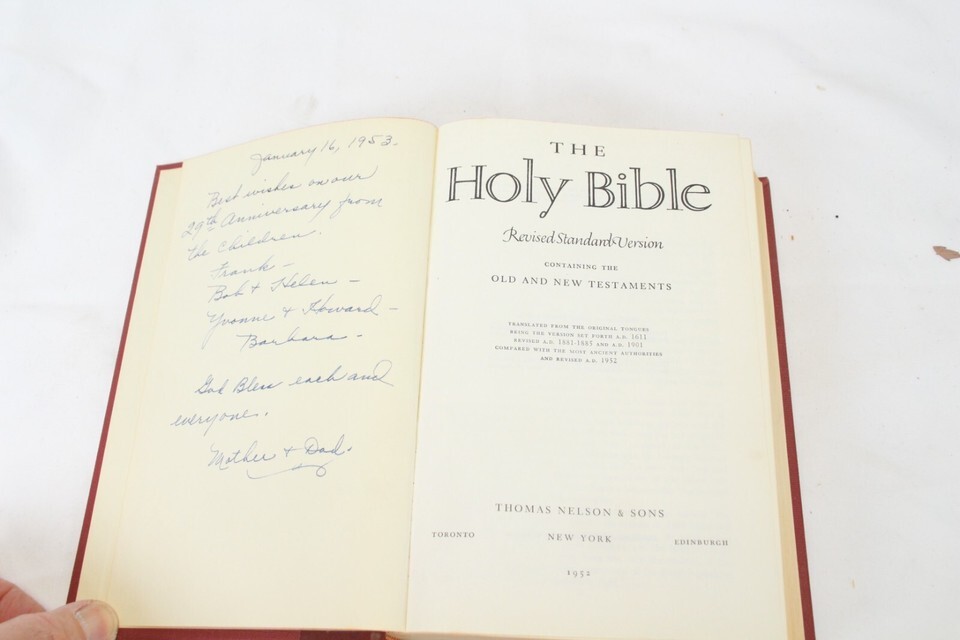 January 16, 1953.
Best wishes on our
29th Anniversary from
the children.
Frank –
Bob + Helen –
Yvonne + Howard –
Barbara –
God Bless each and
everyone.
Mother + Dad.
THE
Holy Bible
Revised Standard Version
CONTAINING THE
OLD AND NEW TESTAMENTS
TRANSLATED FROM THE ORIGINAL TONGUES
BEING THE VERSION SET FORTH A.D. 1611
REVISED A.D. 1881-1885 AND A.D. 1901
COMPARED WITH THE MOST ANCIENT AUTHORITIES
AND REVISED A.D. 1952
THOMAS NELSON & SONS
TORONTO NEW YORK EDINBURGH
1952